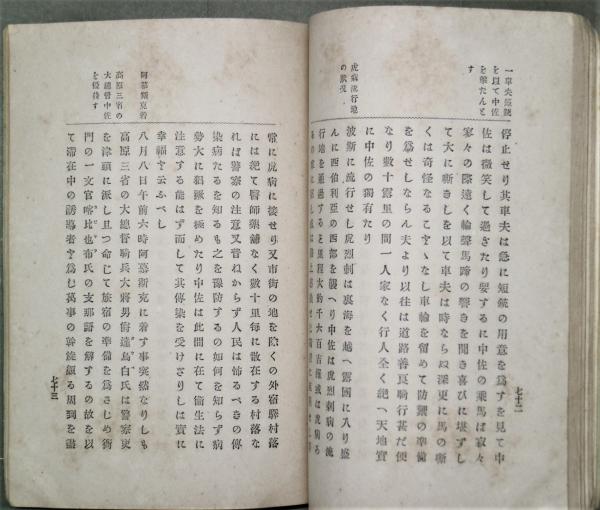 一車夫短銃
を以て中佐
を撃たんと
す
停止せり其車夫は急に短銃の用意を爲すを見て中
佐は微笑して過ぎたり要するに中佐の乘馬は寂々
寥々の際遠く輪聲馬蹄の響きを聞き喜びに堪ずし
て大に嘶きしを以て車夫は時ならぬ深更に馬の嘶
くは奇怪なることゝなし車輪を留めて防禦の準備
を爲せしならん夫より以往は道路善良騎行甚だ便
なり數十露里の間一人家なく行人全く絶へ天地實
に中佐の獨有たり
虎病流行地
の狀況
波斯に流行せし虎烈刺は裏海を越へ露國に入り盛
んに西伯利亞の西部を襲へり中佐は虎烈刺病の流
行地を通過する
七十二
常に虎病に接せり又市街の地を除くの外宿驛村落な
には絶て醫師藥舖なく數十里毎に散在する村落な
れば警察の注意又普ねからず人民は怖るべきの傳
染病たるを知るも之を豫防するの如何を知らず病
勢大に猖獗を極めたり中佐は此間に在て衞生法に
注意する能はず而して其傳染を受けざりしは實に
幸福と云ふべし
阿慕斯克着
八月八日午前六時阿慕斯克に着す事突然なりしも
高原三省の
大總督中佐
を優待す
高原三省の大總督騎兵大將男爵達烏白氏は警察吏
を津頭に派し且つ命じて旅宿の準備を爲さしめ衙
門の一文官喀比也布氏の支那語を解するの故を以
て滯在中の誘導者と爲し萬事の幹旋頗る周到を盡
七十三